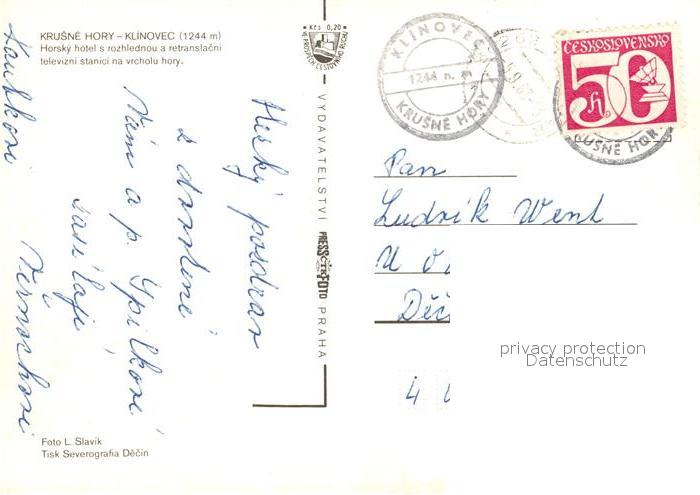 KRUŠNÉ HORY – KLÍNOVEC (1244 m)
Horský hotel s rozhlednou a retranslační
televizní stanicí na vrcholu hory.
Kčs 0,20
Hezký pozdrav
z dovolené
Vám a p.
zasílají
VYDAVATELSTVÍ PRESSFOTO PRAHA
KLÍNOVEC
1244 n. m.
KRUŠNÉ HORY
ČESKOSLOVENSKO
50 h
UŠNÉ HOR
Pan
Ludvík Went
U
Děč
4
privacy protection
Datenschutz
Foto L. Slavík
Tisk Severografia Děčín